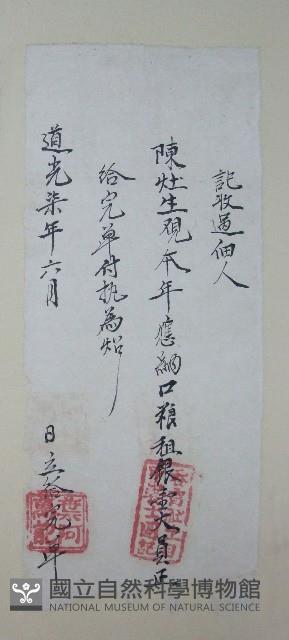 記收過佃人
陳灶生硯本年應納口粮租銀壹大員正
給完单付执為炤
道光柒年六月 日立給完单
國立自然科學博物館
NATIONAL MUSEUM OF NATURAL SCIENCE